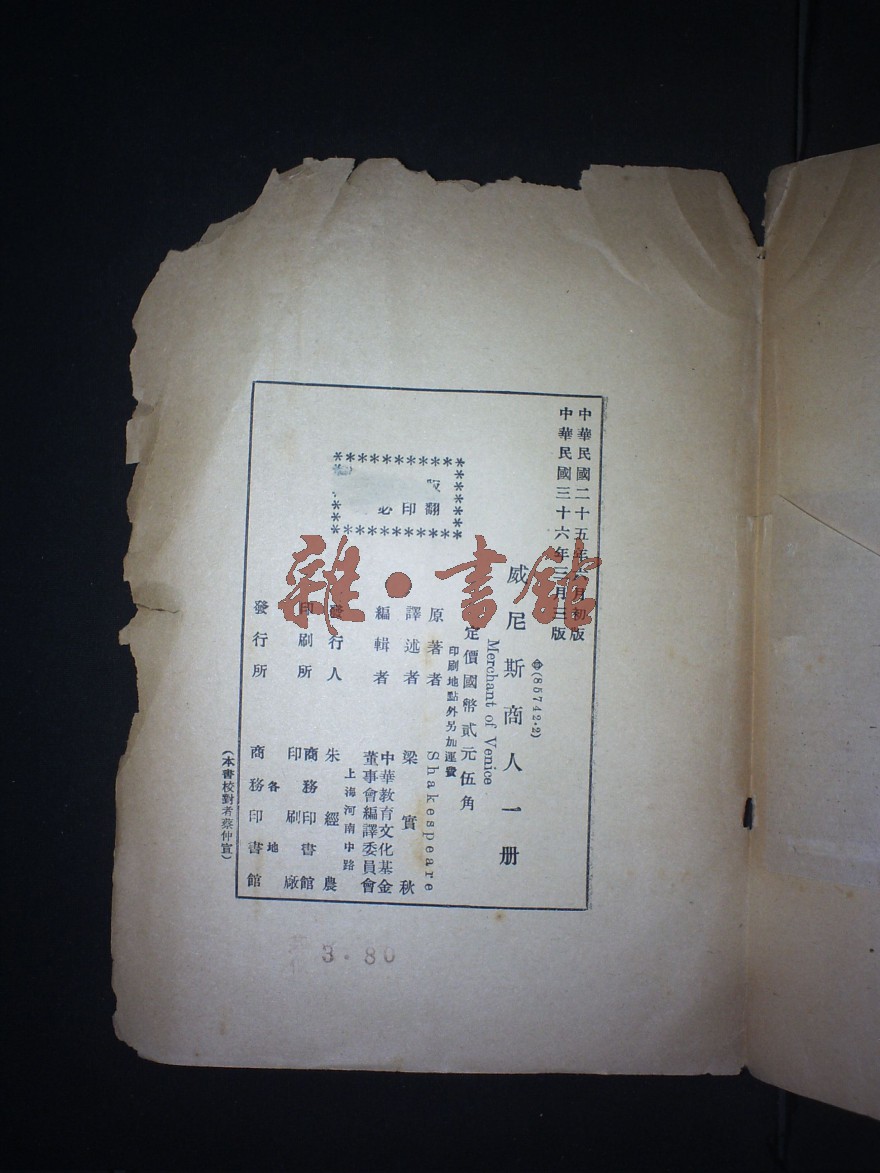 中華民國二十五年六月初版
中華民國三十六年三月三版
㊥(85742·2)
威尼斯商人一册
Merchant of Venice
定價國幣貳元伍角
印刷地點外另加運費
翻印必
原著者 Shakespeare
譯述者 梁實秋
編輯者 中華教育文化基金董事會編譯委員會
上海河南中路
發行人 朱經農
印刷所 商務印書館印刷廠
各地
發行所 商務印書館
(本書校對者蔡仲宣)
3.80
雜·書館